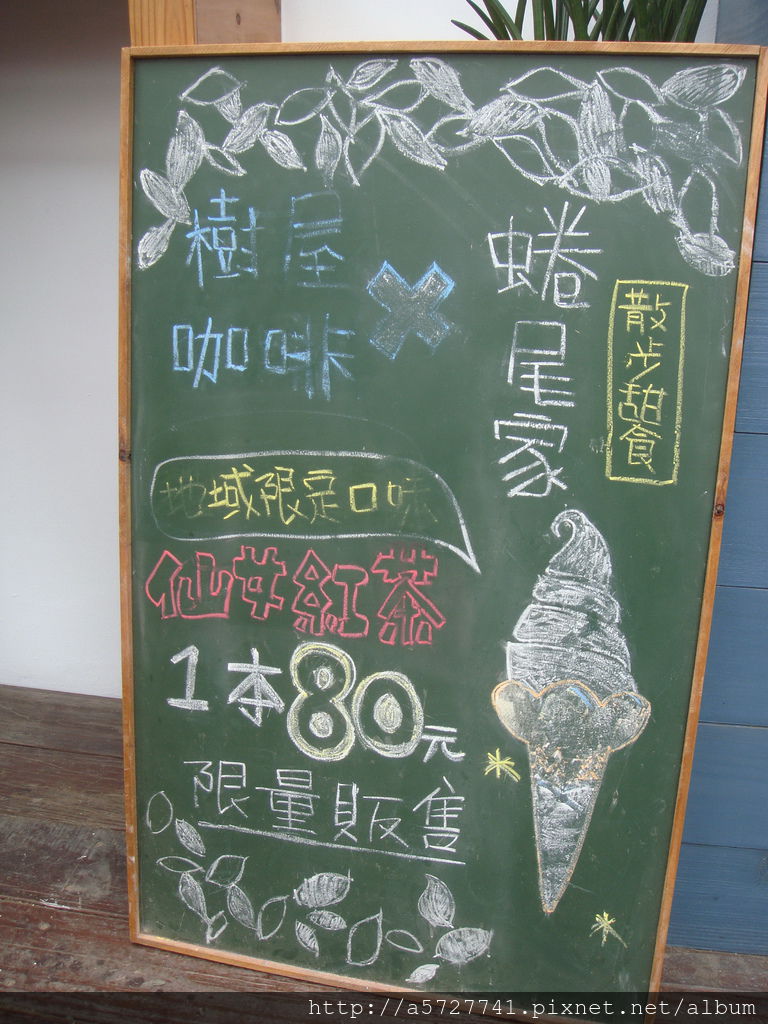 樹屋
咖啡
×
蜷尾家
散步甜食
地域限定口味
仙女紅茶
1本80元
限量販售
http://a5727741.pixnet.net/album